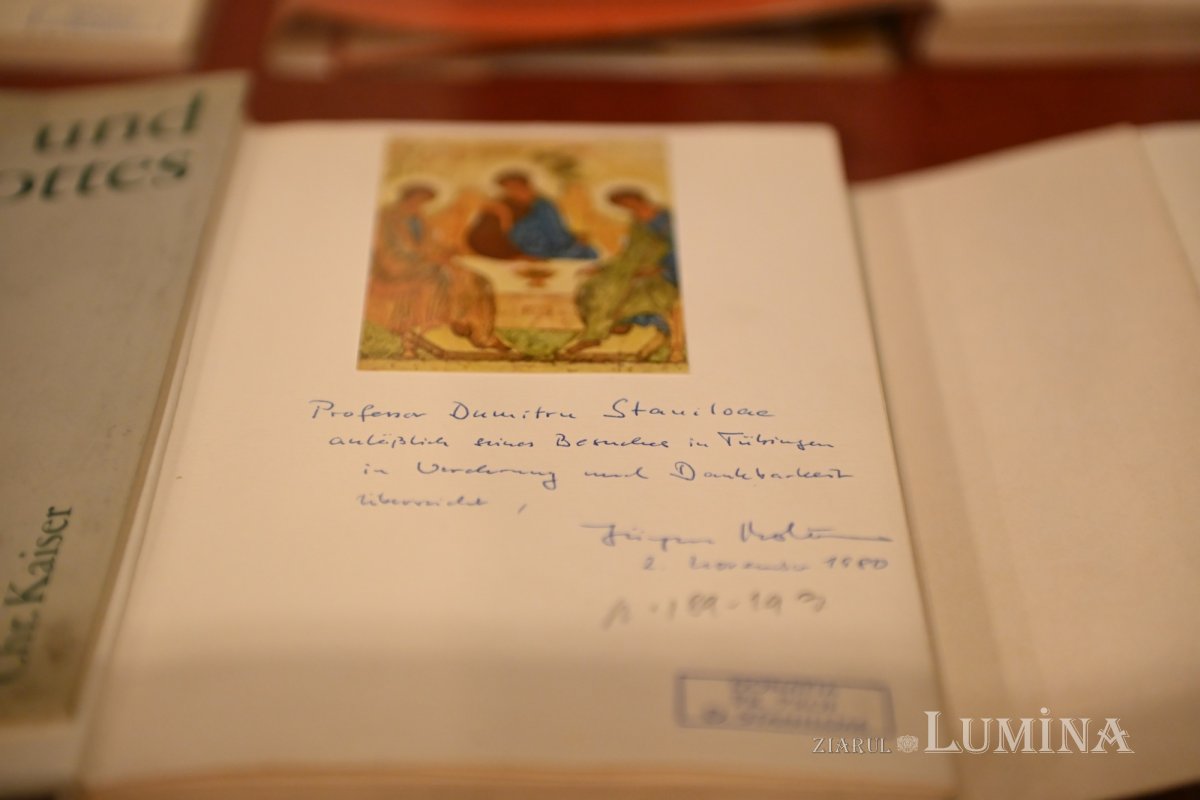 und
ottes
Chr. Kaiser
Professor Dumitru Staniloae
anläßlich seines Besuches in Tübingen
in Verehrung und Dankbarkeit
überreicht,
Jürgen Moltmann
2. November 1980
ZIARUL LUMINA